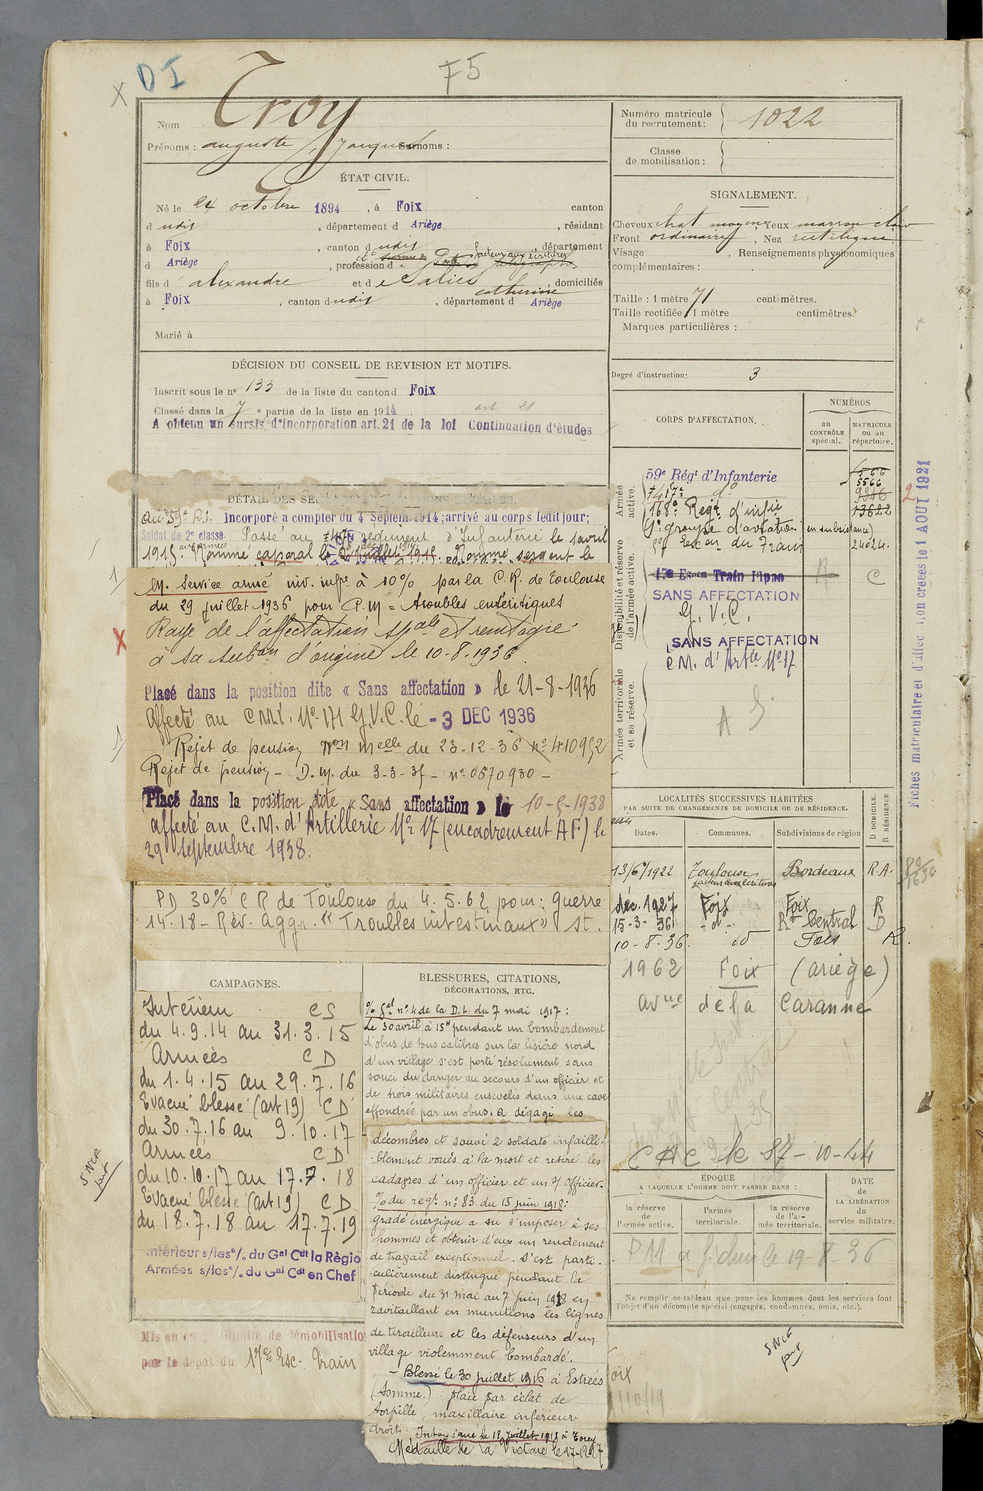 DI
F5
Nom Troy
Prénoms : auguste, Jacques Surnoms :
Numéro matricule du recrutement : 1022
Classe de mobilisation :
ÉTAT CIVIL.
Né le 24 octobre 1894, à Foix canton
d udis, département d Ariège, résidant
à Foix, canton d udis, département
d Ariège, profession d
fils d alexandre et d domiciliés
catherine
à Foix, canton d udis, département d Ariège
Marié à
SIGNALEMENT.
Cheveux chat moyens, Yeux marron clair
Front ordinaire, Nez rectiligne
Visage , Renseignements physionomiques
complémentaires :
Taille : 1 mètre 71 centimètres.
Taille rectifiée 1 mètre centimètres.
Marques particulières :
Degré d'instruction: 3
DÉCISION DU CONSEIL DE REVISION ET MOTIFS.
Inscrit sous le n° 133 de la liste du canton d Foix
Classé dans la 7 e partie de la liste en 1914 art 21
A obtenu un sursis d'incorporation art. 21 de la loi Continuation d'études
DÉTAIL DES
Au 59e R.I. Incorporé à compter du 4 Septem. 1914; arrivé au corps ledit jour;
Soldat de 2e classe. Passé au régiment d'Infanterie le 1 avril
1915 Nommé caporal le juillet 1915. Nommé sergent le
M. Service armé inv. mpe à 10% par la C.R. de Toulouse
du 29 juillet 1936 pour P.M = troubles entéritiques
Rayé de l'affectation spale et réintégré
à sa subon d'origine le 10.8.1936
Placé dans la position dite « Sans affectation » le 21-8-1936
Affecté au C.M.I. N° 171 G.V.C. le - 3 DEC 1936
Rejet de pension Mon Melle du 23-12-36 n° 410952
Rejet de pension - D.M. du 3-3-37 - n° 0670930 -
Placé dans la position dite « Sans affectation » le 10-5-1938
affecté au C.M. d'Artillerie N° 17 (encadrement A F) le
29 Septembre 1938.
PD 30% C R de Toulouse du 4.5.62 pour: guerre
14.18 - Rév. Aggr. "Troubles intestinaux" St.
CORPS D'AFFECTATION.
NUMÉROS
au CONTRÔLE spécial.
MATRICULE ou au répertoire.
Armée active.
59e Régt d'Infanterie
5566
168e Regt d'infie
13622
1er groupe d'aviation (en subsistance)
17e Escon du Train 24624
Disponibilité et réserve de l'armée active.
17e Escon Train Ppao R C
SANS AFFECTATION
G. V. C.
SANS AFFECTATION
C M. d'Artie N° 17
Armée territoriale et sa réserve.
A S
Fiches matriculaire et d'affec non créées le 1 AOUT 1921
LOCALITÉS SUCCESSIVES HABITÉES
PAR SUITE DE CHANGEMENTS DE DOMICILE OU DE RÉSIDENCE.
Dates. Communes. Subdivisions de région D DOMICILE. R RÉSIDENCE
13/6/1922 Toulouse Bordeaux R.A.
déc. 1927 Foix Foix R
15-3-36 - d° - Rt Central D
10-8-36 id Foix R.
1962 Foix (ariège)
avnue de la Caranne
C A C le 27-10-44
ÉPOQUE
A LAQUELLE L'HOMME DOIT PASSER DANS :
la réserve de l'armée active.
l'armée territoriale.
la réserve de l'armée territoriale.
DATE de LA LIBÉRATION du service militaire.
P 11 a fichier le 19-8-36
Ne remplir ce tableau que pour les hommes dont les services font
l'objet d'un décompte spécial (engagés, condamnés, omis, etc.).
CAMPAGNES.
Intérieur CS
du 4.9.14 au 31.3.15
Armées CD
du 1.4.15 au 29.7.16
Evacué blessé (art 19) CD
du 30.7.16 au 9.10.17
Armées CD
du 10.10.17 au 17.7.18
Evacué blessé (art 19) CD
du 18.7.18 au 17.7.19
Intérieur s/les o/. du Gal Cdt la Régio
Armées s/les o/. du Gal Cdt en Chef
Mis en congé illimité de démobilisation
par le dépôt du 17e Esc. Train
BLESSURES, CITATIONS,
DÉCORATIONS, ETC.
O/ gal n° 4 de la D.I. du 7 mai 1917 :
Le 30 avril à 15h pendant un bombardement
d'obus de tous calibres sur la lisière nord
d'un village s'est porté résolument sans
souci du danger au secours d'un officier et
de trois militaires ensevelis dans une cave
effondrée par un obus. A dégagé les
décombres et sauvé 2 soldats infailli-
-blement voués à la mort et retiré les
cadavres d'un officier et un s/ officier.
O/ du regt n° 83 du 15 juin 1918 :
gradé énergique a su s'imposer à ses
hommes et obtenir d'eux un rendement
de travail exceptionnel. S'est parti-
-culièrement distingué pendant la
période du 31 mai au 7 juin 1918 en
ravitaillant en munitions les lignes
de tirailleurs et les défenseurs d'un
village violemment bombardé.
- Blessé le 30 juillet 1916 à Estrées
(Somme.) plaie par éclat de
torpille, maxillaire inférieur
droit. Intoxiqué le 18 Juillet 1918 à Torcy
Médaille de la Victoire le 27-1927